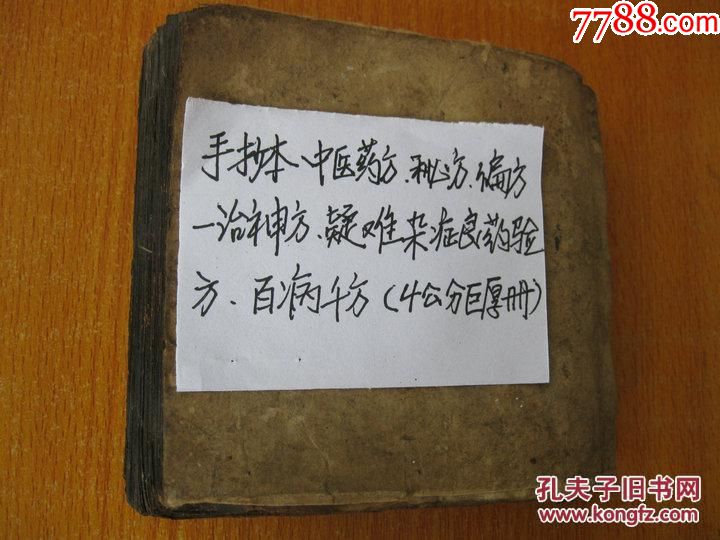 7788.com
手抄本、中医药方、秘方、偏方
一治神方、疑难杂症良药验
方、百病千方(4公分巨厚册)
孔夫子旧书网
www.kongfz.com